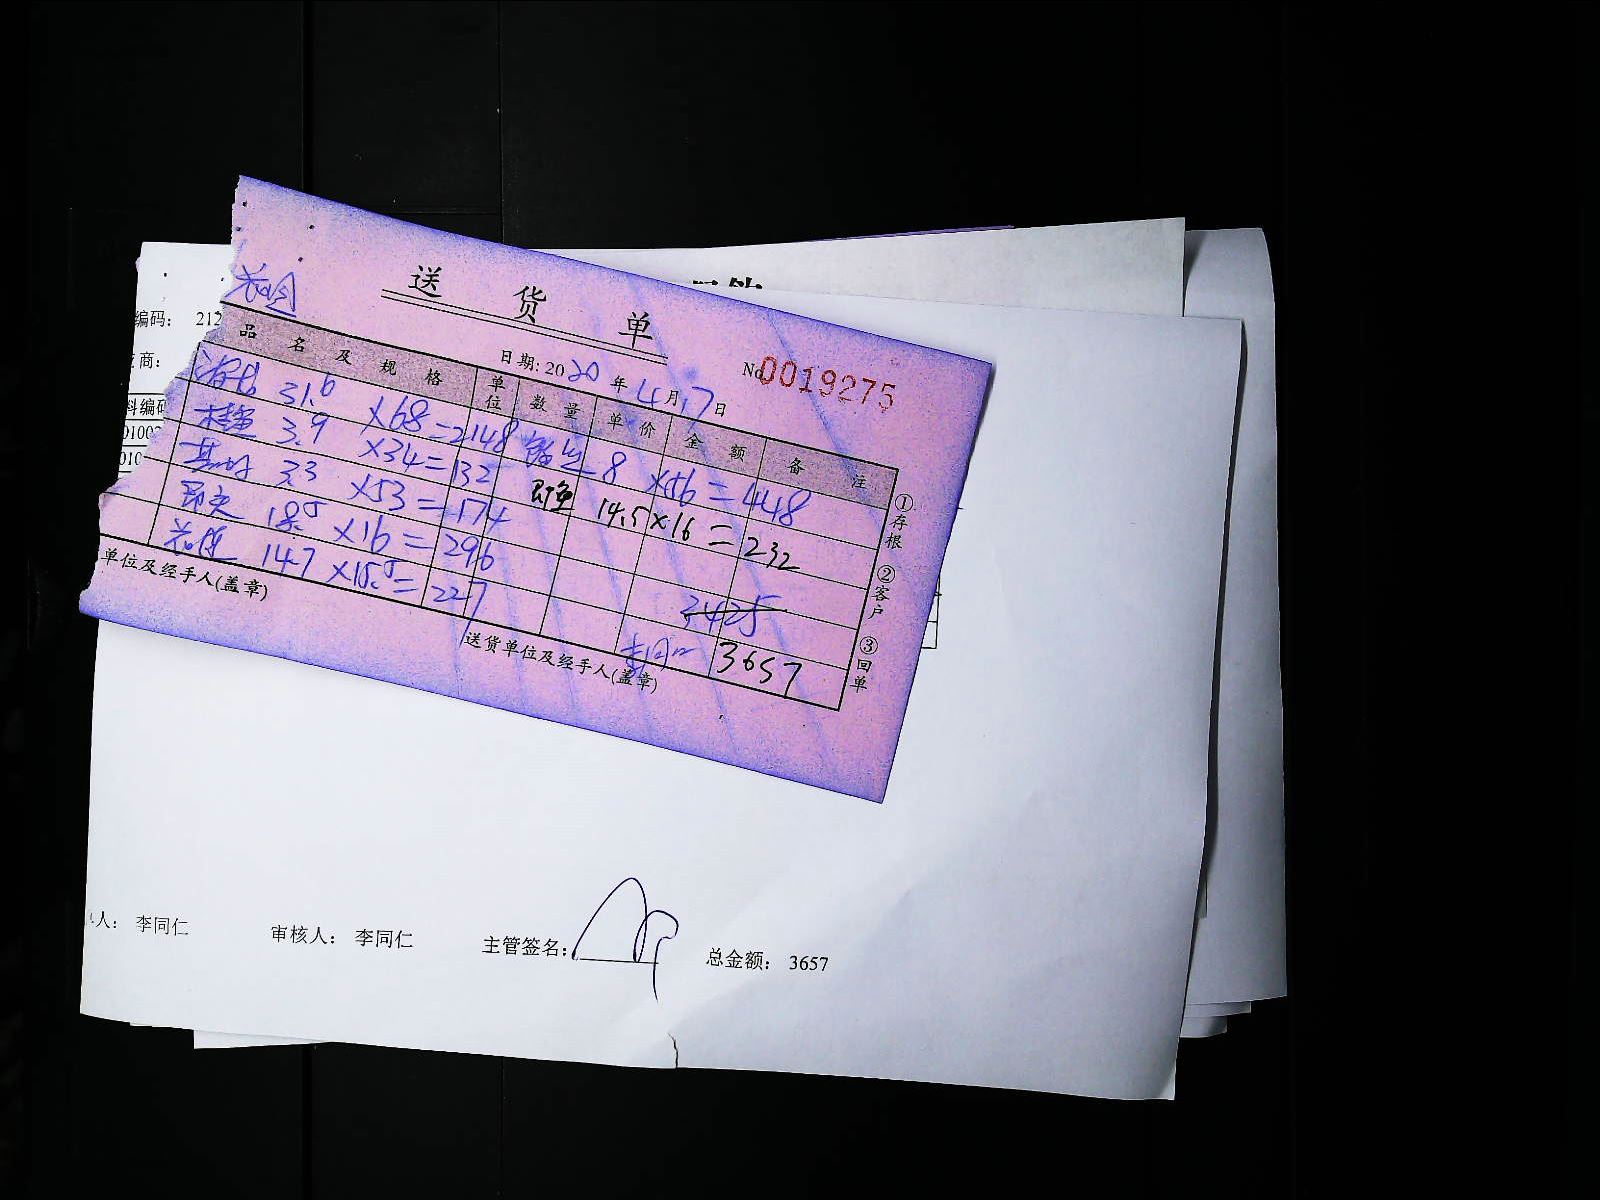 送货单
日期: 2020年4月17日
No 0019275
品名及规格 单位 数量 单价 金额 备注
31.6 ×68=2148 8 ×56=448
3.9 ×34=132 14.5×16=232
3.3 ×53=174
18.5 ×16=296
14.7 ×15.5=227 3425
3657
单位及经手人(盖章)
送货单位及经手人(盖章)
①存根
②客户
③回单
编码: 212
商:
料编码
01002
010
人: 李同仁 审核人: 李同仁 主管签名: 总金额: 3657